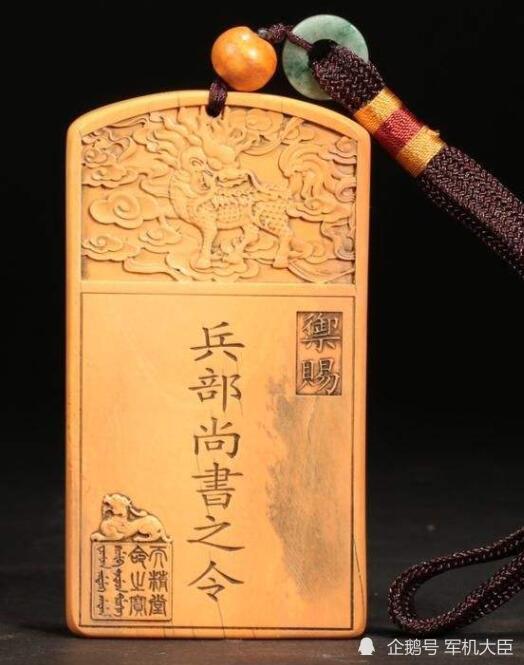 禦賜
兵部尚書之令
企鹅号 军机大臣